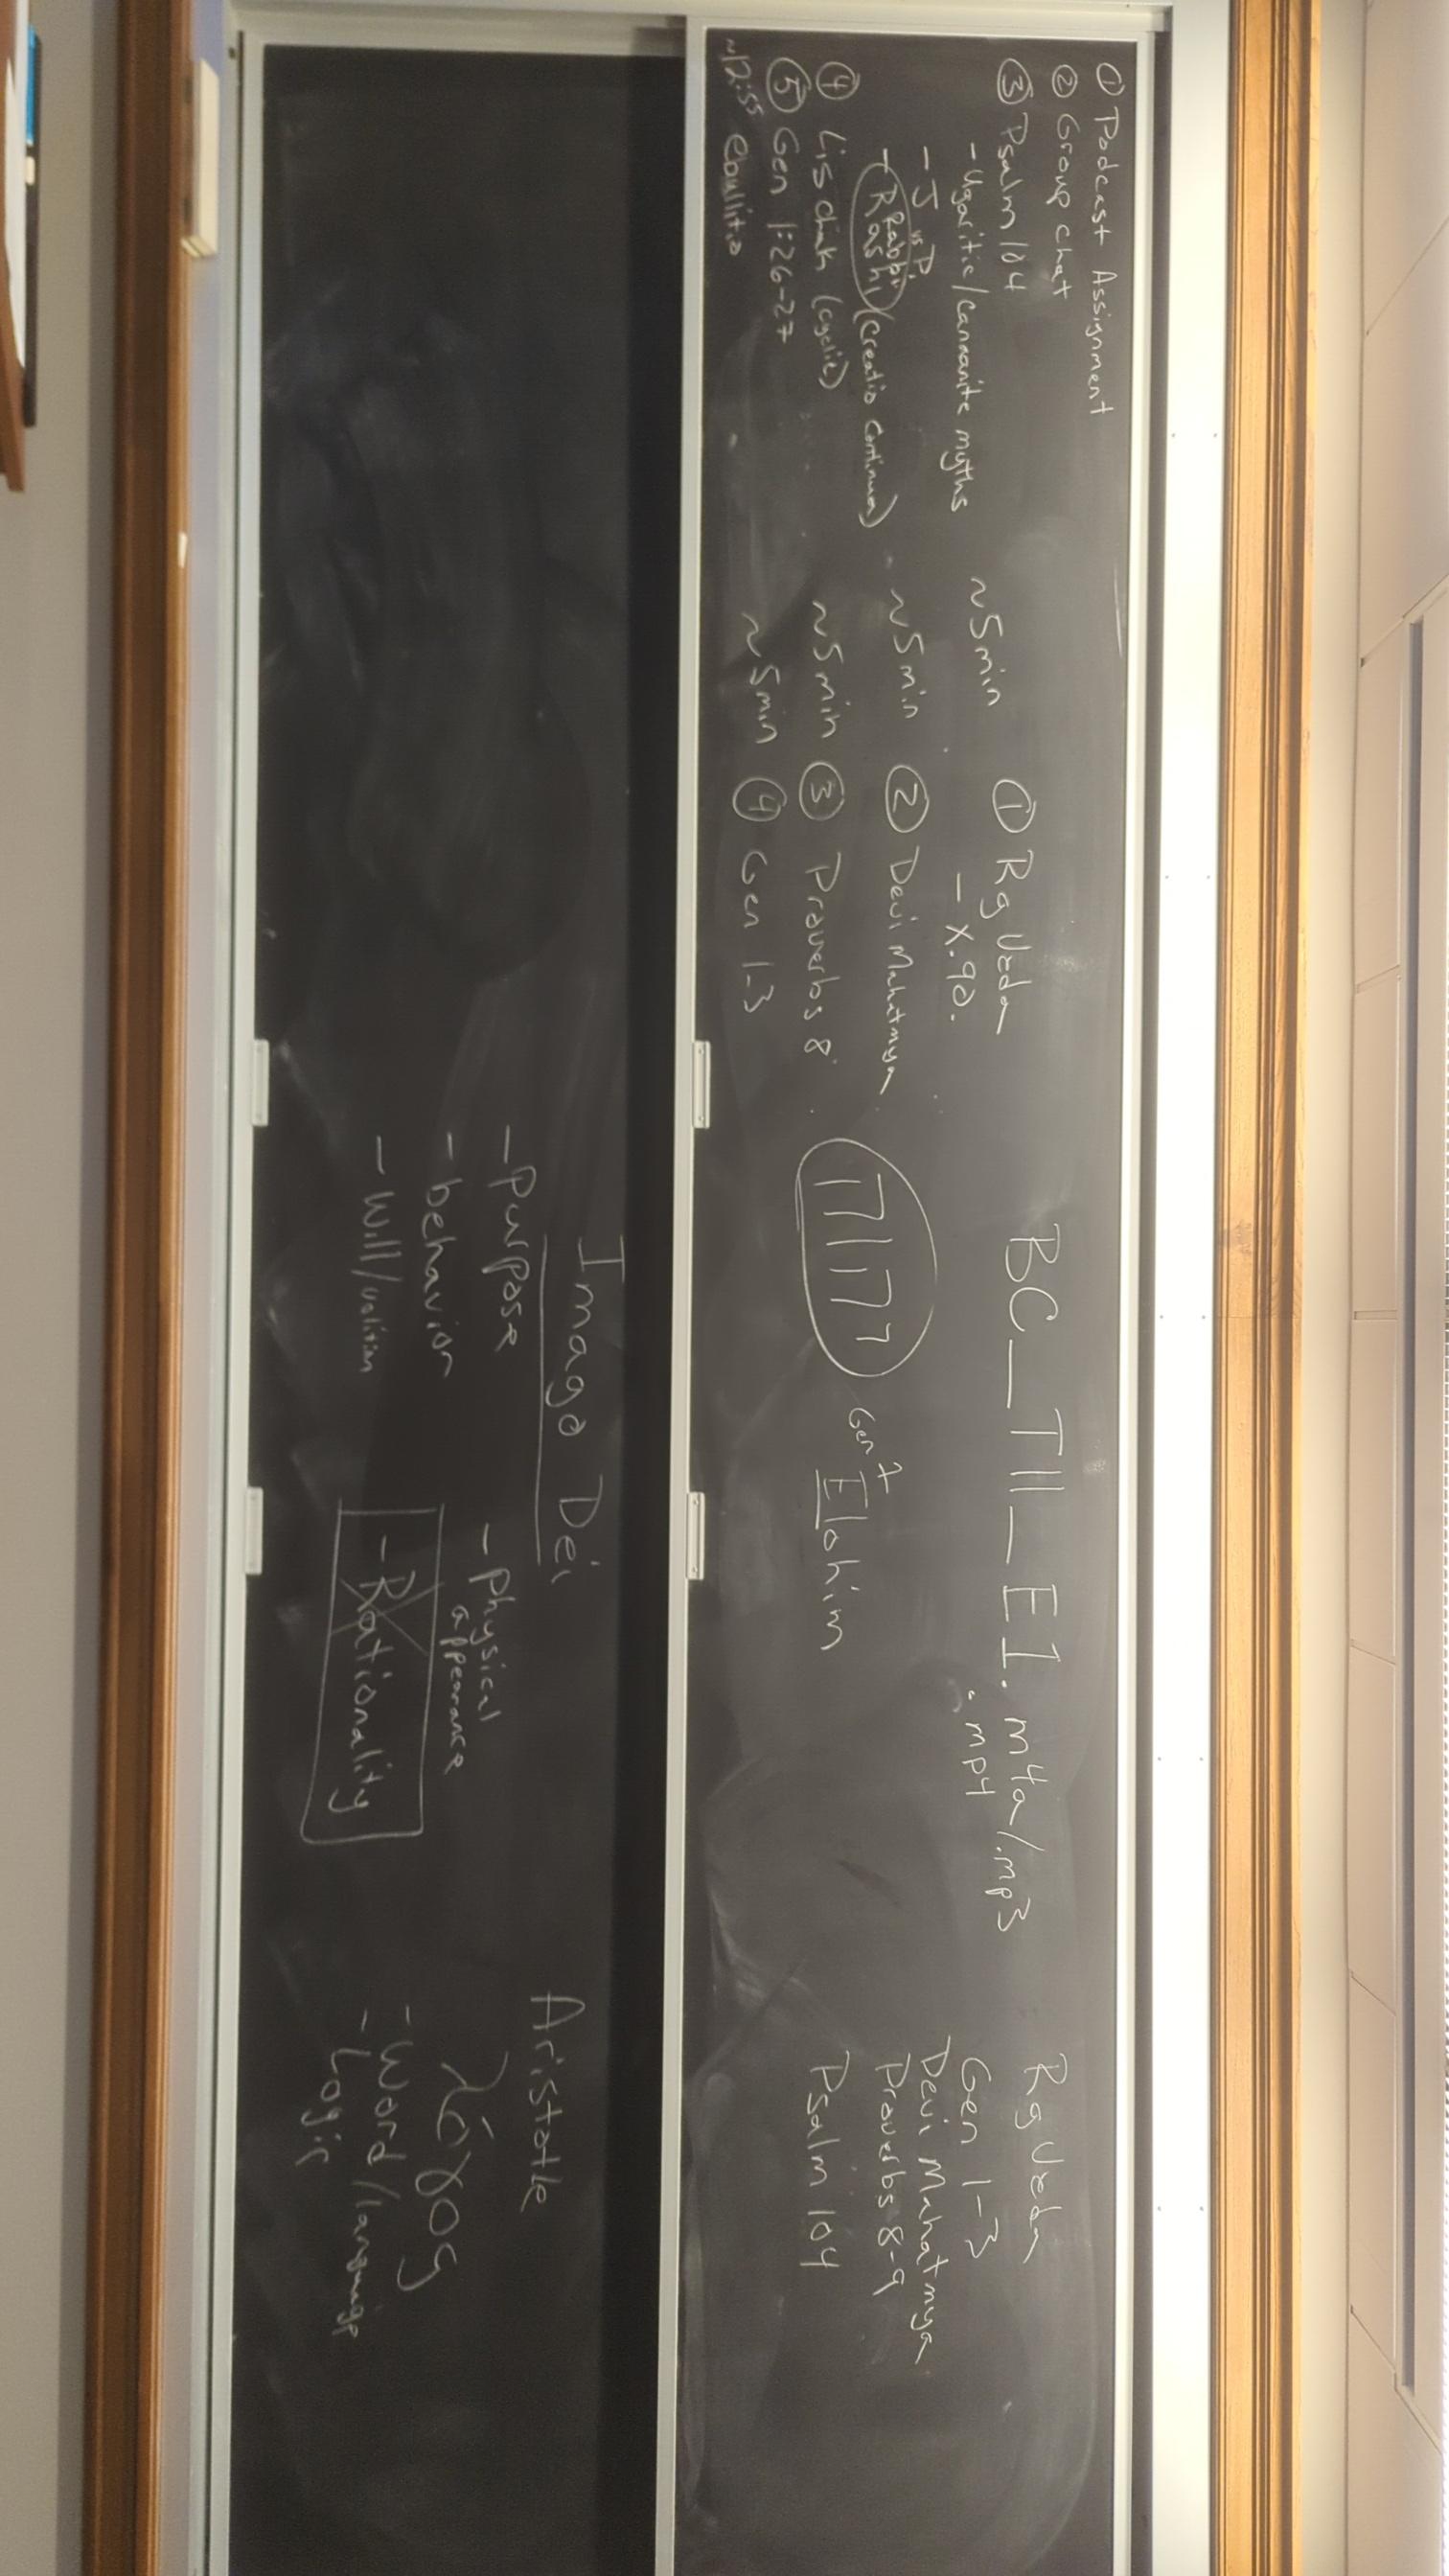 ① Podcast Assignment
② Group chat
③ Psalm 104
- Ugaritic/Canaanite myths
- J vs P.
- Rabbi Rashi (Creatio Continua)
④ (cyclic)
⑤ Gen 1:26-27
~12:55 ebullitio
~5min ① Rg Veda
- X.90.
~5min ② Devi Mahatmya
~5min ③ Proverbs 8
~5min ④ Gen 1-3
BC_T11_E1. m4a/.mp3
.mp4
יהוה
Gen 1
Elohim
Rg Veda
Gen 1-3
Devi Mahatmya
Proverbs 8-9
Psalm 104
Imago Dei
- Purpose
- behavior
- Will/volition
- Physical
appearance
- Rationality
Aristotle
λόγος
- Word/language
- Logic